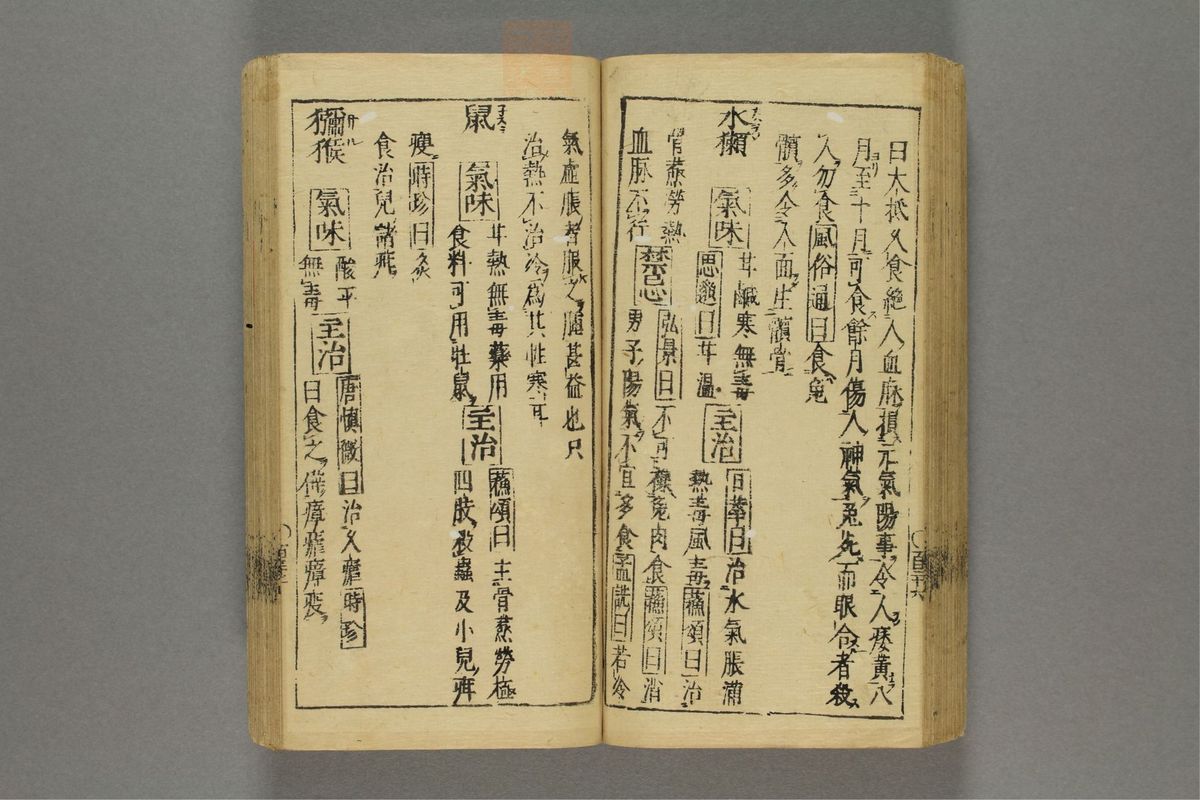 日大抵久食絶人血脉損元氣陽事令人痿黄八
月至十月可食餘月傷人神氣兎死而眼合者殺
人勿食風俗通曰食兎
髕多令人面生髕骨
水獺
氣味
甘鹹寒無毒
思邈曰甘温
主治
日華曰治水氣脹滿
熱毒風毒蘇頌曰治
骨蒸勞熱
血脉不行
禁忌
弘景曰不可襍兎肉食蘇頌曰消
男子陽氣不宜多食孟詵曰若冷
氣虚脹者服之甚益也只
治熱不治冷為其性寒耳
鼠
氣味
甘熱無毒藥用
食料可用牡鼠
主治
蘇頌曰主骨蒸勞極
四肢殺蟲及小兒疳
瘦時珍曰炙
食治兒諸疳
獼猴
サル
氣味
酸平
無毒
主治
唐慎微曰治久瘧時珍
曰食之